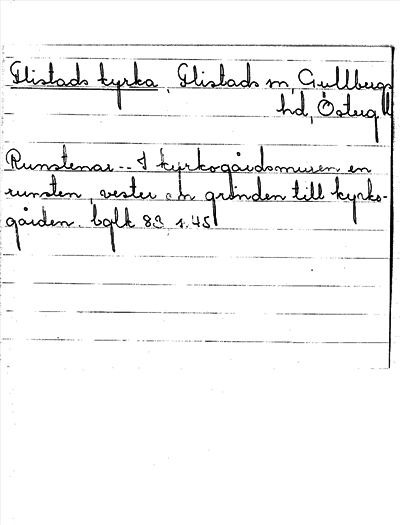 Flistads kyrka, Flistads sn, Gullbergs
hd, Östergtl
Runstenar.-. I kyrkogårdsmuren en
runsten, vester om grinden till kyrko-
gården. bglk 83, s. 45